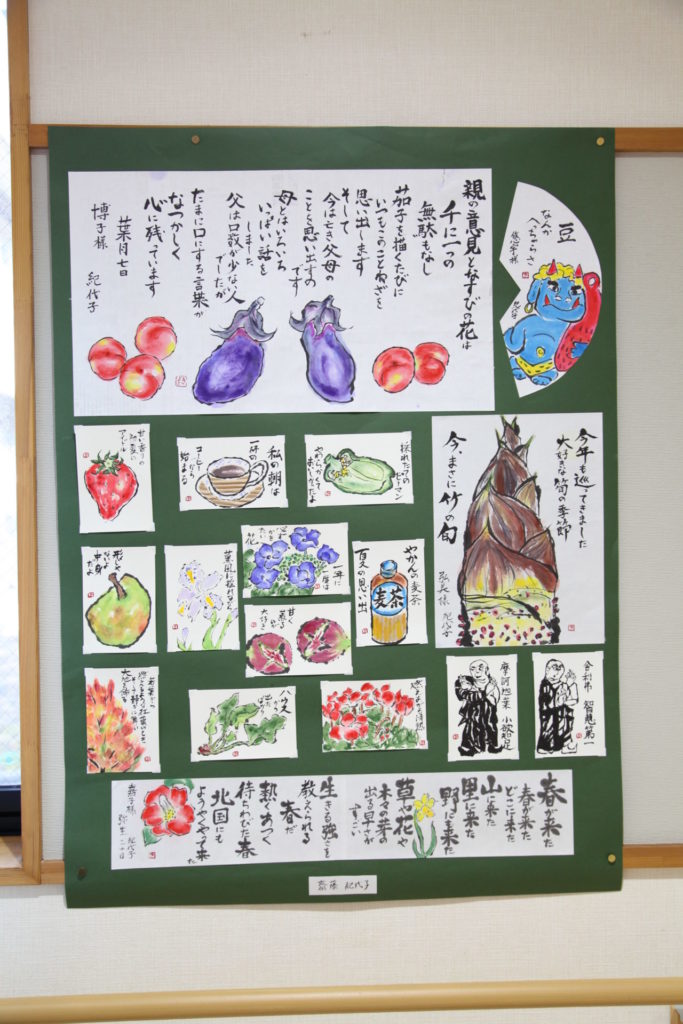 親の意見となすびの花は
千に一つの
無駄もなし
茄子を描くたびに
いつもこのことわざを
思い出します
そして
今は亡き父母の
ことを思い出すの
です
母とはいろいろ
いっぱい話を
しました
父は口数が少ない人
でしたが
たまに口にする言葉が
なつかしく
心に残っています
葉月七日
博子様 紀代子
豆
なんか
へっちゃらさ
甘い香りの
アイドル
私の朝は
一杯の
コーヒーから
始まる
採れたての
ピーマン
やわらかくて
おいしかったよ
今年も巡ってきました
大好きな筍の季節
今、まさに竹の旬
紀代子
形じゃ
ないよ
中身
だよ
一年に
一度は
花
やかんの麦茶
夏の思い出
麦茶
大好き
ハウス
から
出た
摩訶迦葉 小欲知足
舎利弗 智慧第一
春が来た
春が来た
どこに来た
山に来た
里に来た
野に来た
草や花や
木々の芽の
出る早さが
すごい
生きる強さを
教えられる
春だ
熱くあつく
待ちわびた春
北国にも
ようやくやって来た
弥生二十日
紀代子
齋藤 紀代子